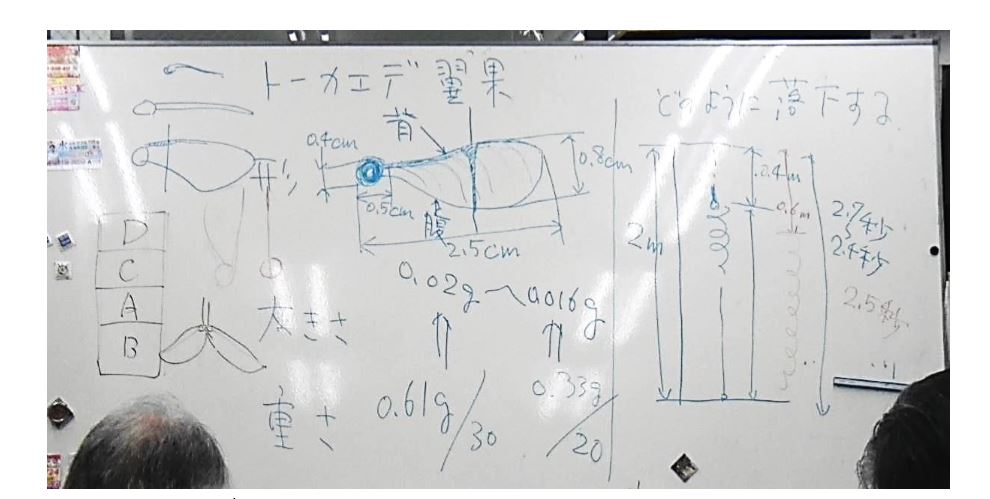 トーカエデ 翼果
背
0.4cm
0.8cm
形
0.5cm
腹
2.5cm
0.02g～0.016g
大きさ
重さ
0.61g/30
0.33g/20
D
C
A
B
どのように落下する
2m
0.4m
0.6m
2.7秒
2.4秒
2.5秒